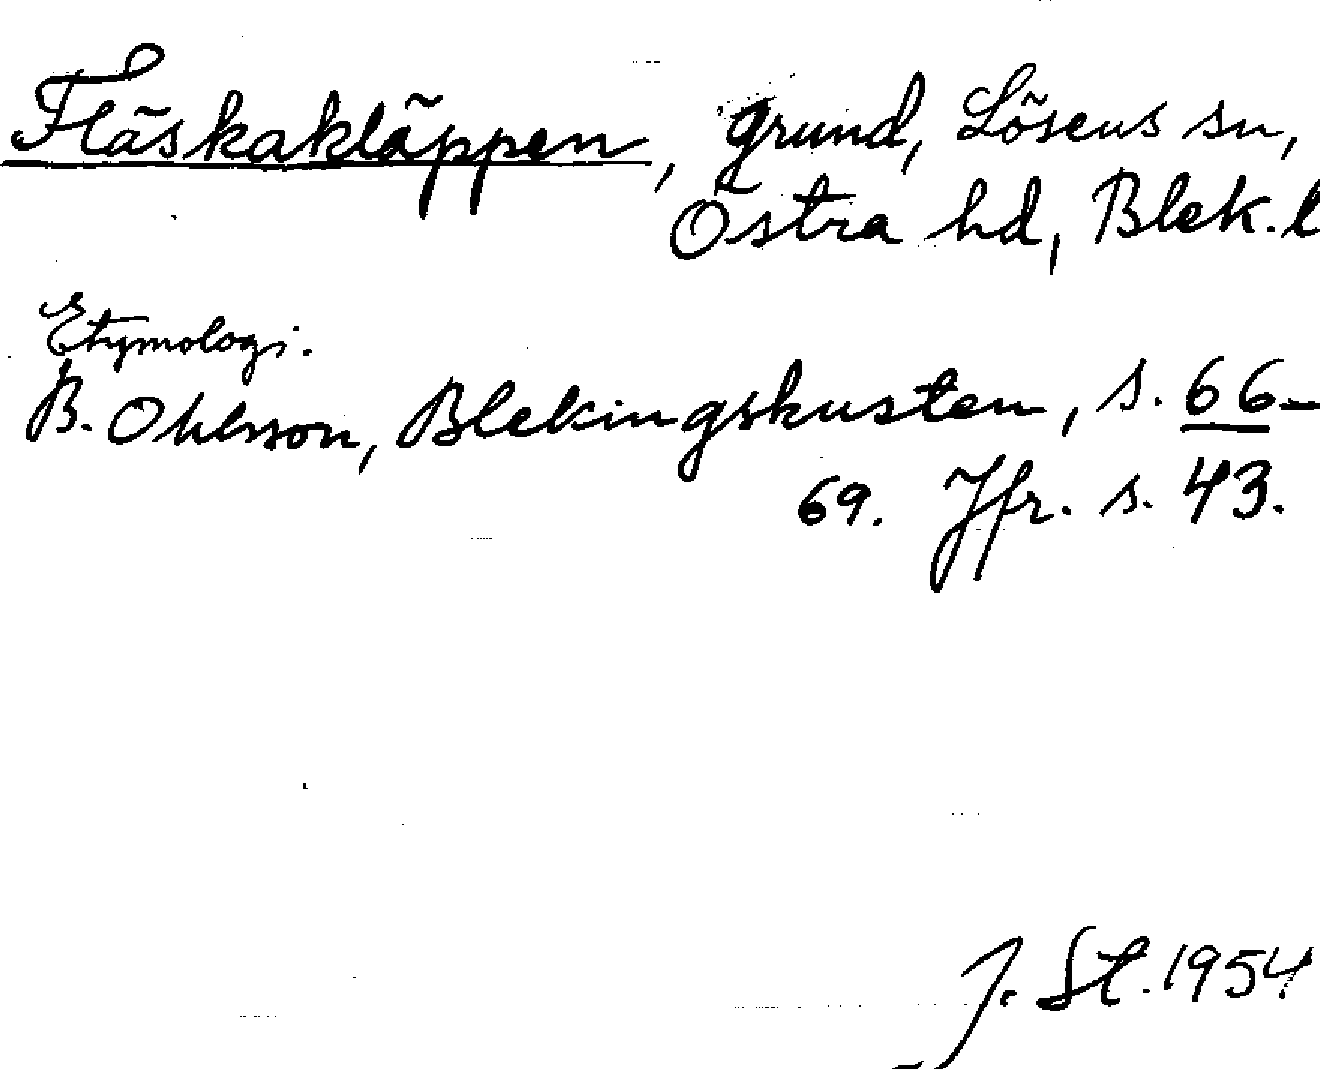 Fläskakläppen, grund, Lösens sn,
Östra hd, Blek.l
Etymologi.
B. Ohlsson, Blekingskusten, s. 66-
69. Jfr. s. 43.
J. St. 1954